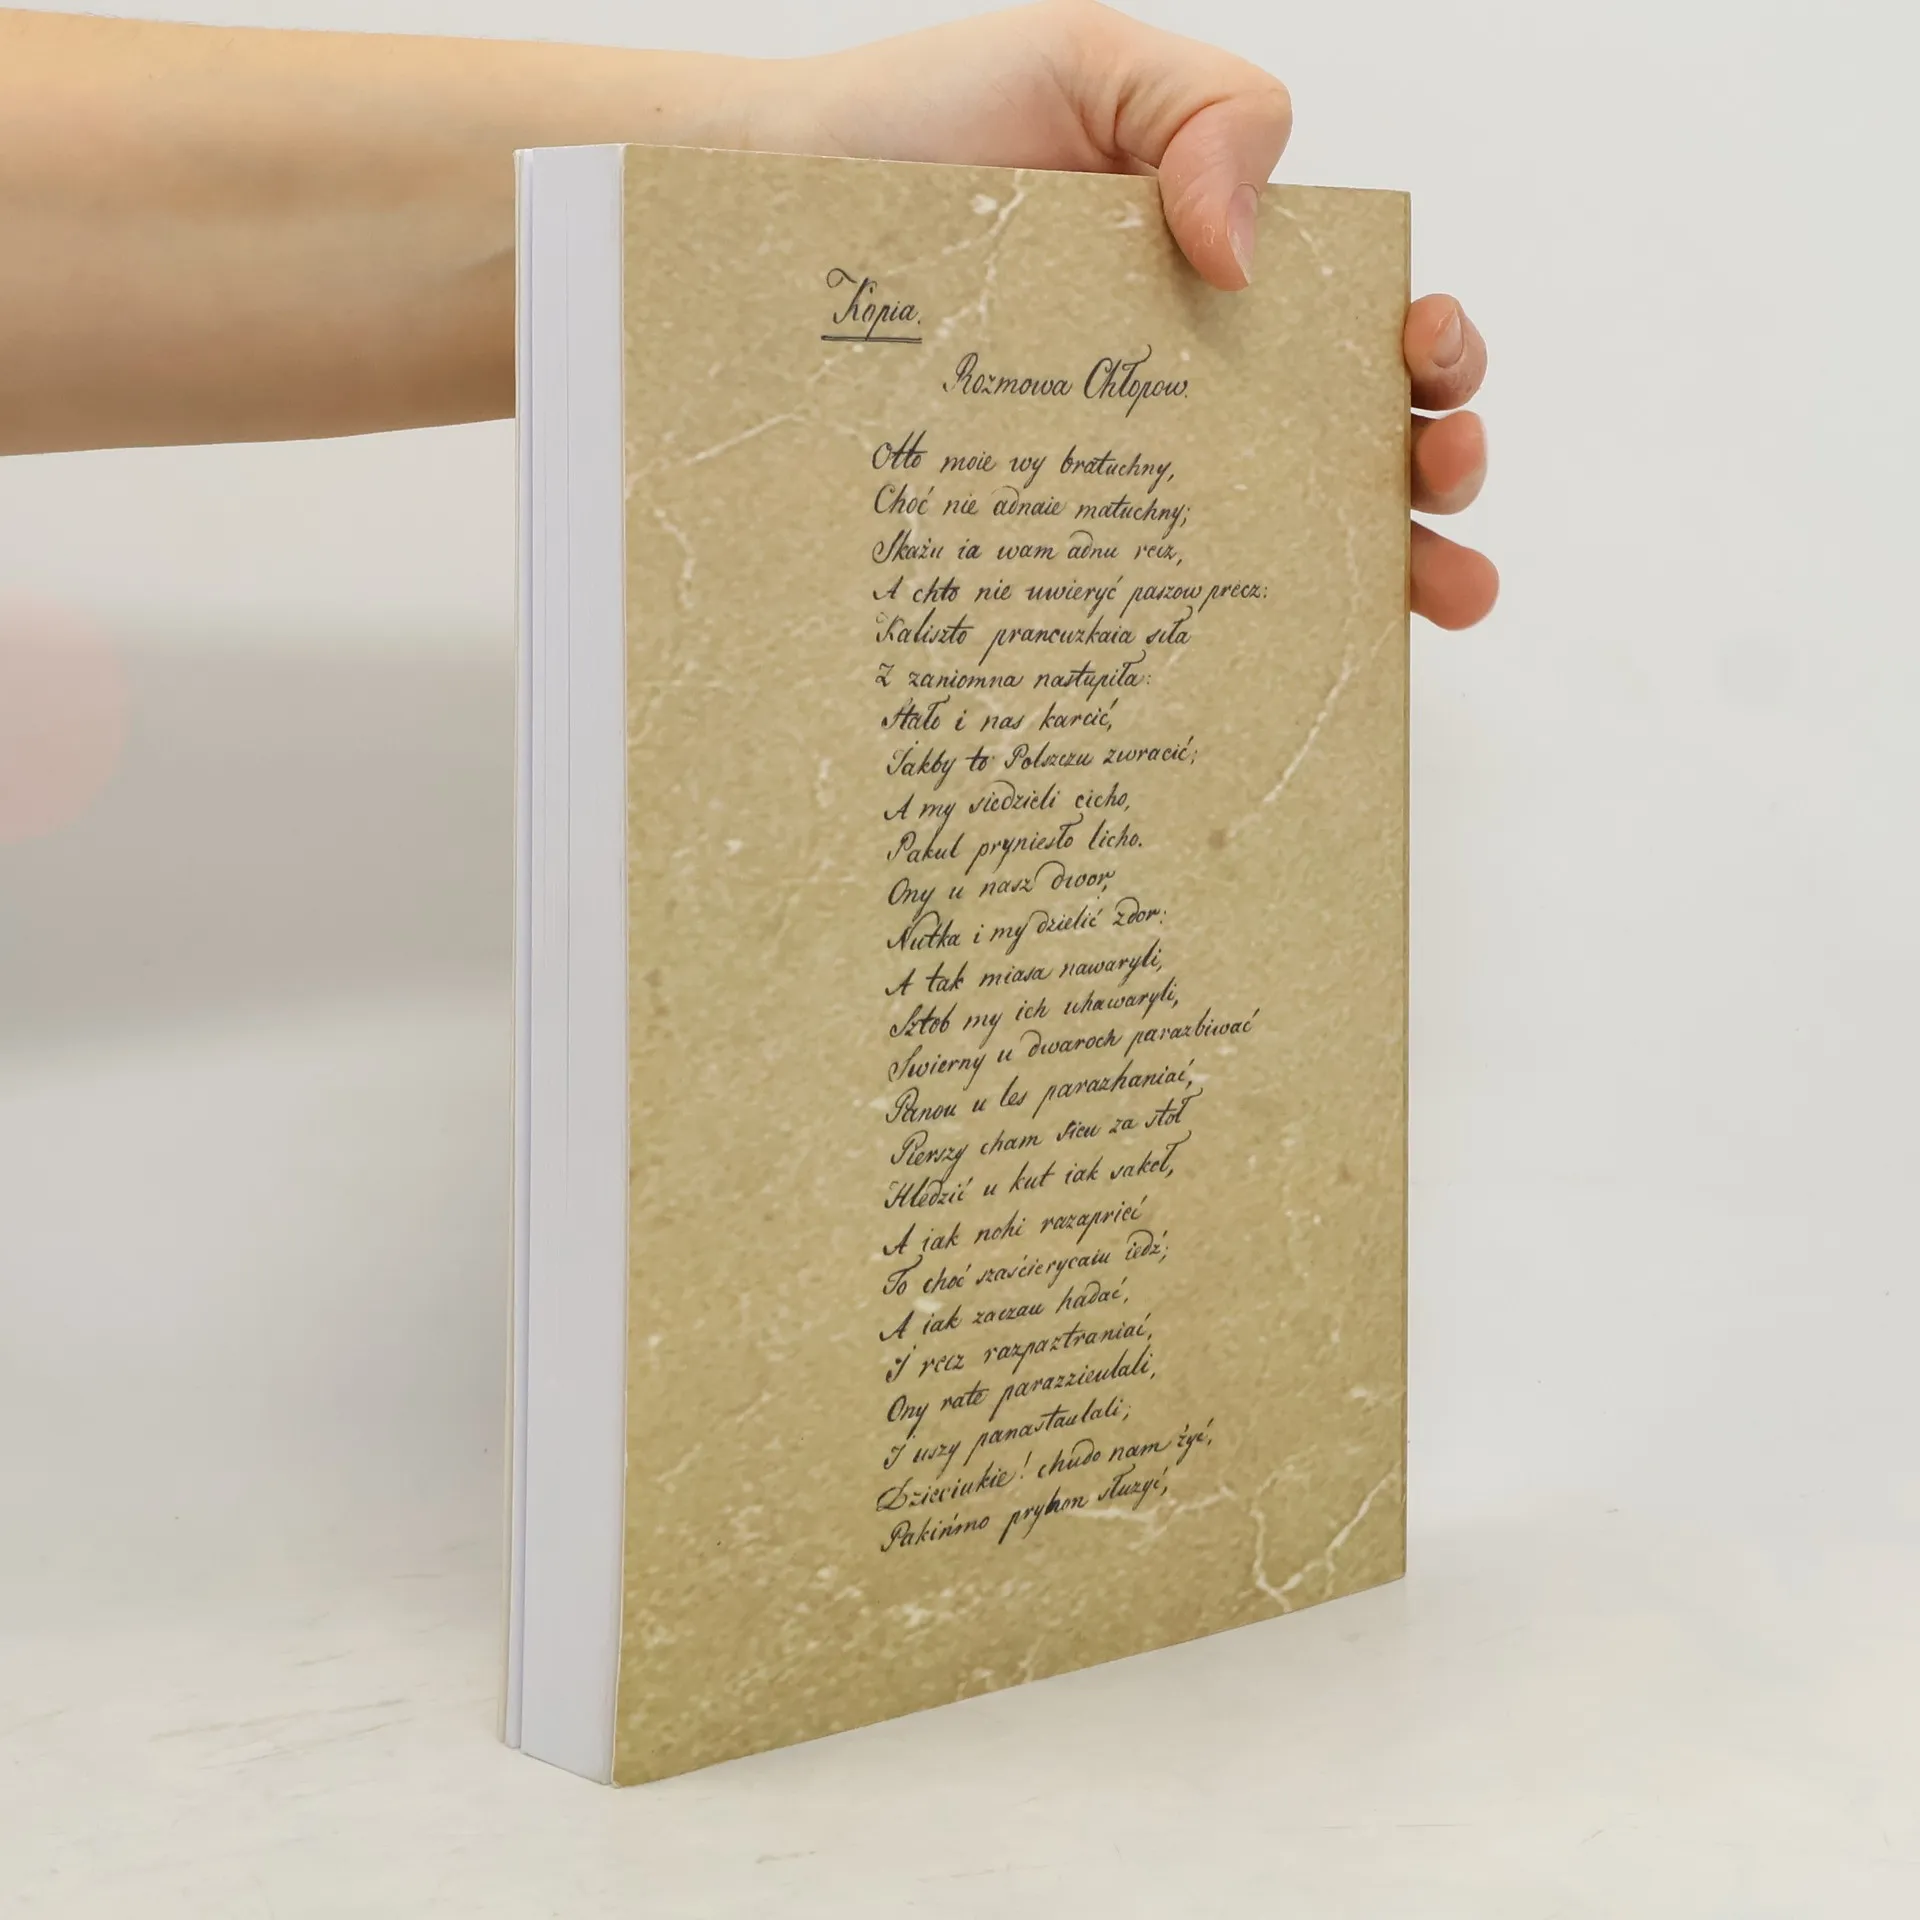 Kopia.
Rozmowa Chłopow.
Otto moie wy bratuchny,
Choć nie adnaie matuchny;
Skażu ia wam adnu recz,
A chto nie uwieryć paszow precz:
Kaliszto prancuzkaia siła
Z zaniomna nastupiła:
Stało i nas karcić,
Jakby to Polszczu zwracić;
A my siedzieli cicho,
Pakul pryniesło licho.
Ony u nasz dwor,
Nutka i my dzielić zdor:
A tak miasa nawaryli,
Sztob my ich uhawaryli,
Swierny u dwaroch parazbiwać
Panou u les parazhaniać,
Pierszy cham sieu za stoł
Hledzić u kut iak sakoł,
A iak nohi razaprieć
To choć szaścierycaiu iedź;
A iak zaczau hadać,
I recz razpaztraniać,
Ony rate parazzieulali,
I uszy panastaulali;
Dzieciukie! chudo nam żyć,
Pakińmo pryhon służyć,